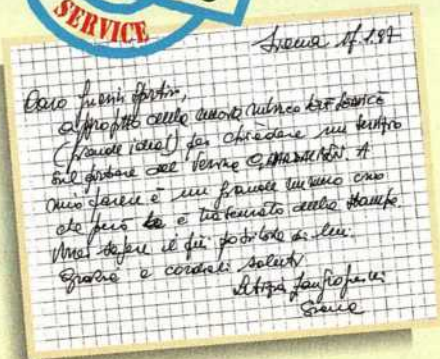 SERVICE
Siena 17.1.97
Caro Guerin Sportivo,
approfitto della nuova rubrica SERVICE
(grande idea!) per chiedere un servizio
sul portiere del Verona. A
mio parere è un grande numero uno
che però è trascurato dalla stampa.
Vorrei sapere il più possibile di lui.
Grazie e cordiali saluti
Siena